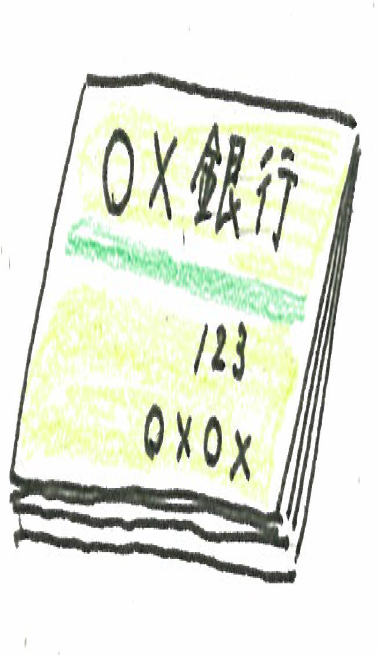 ○×銀行
123
○×○×